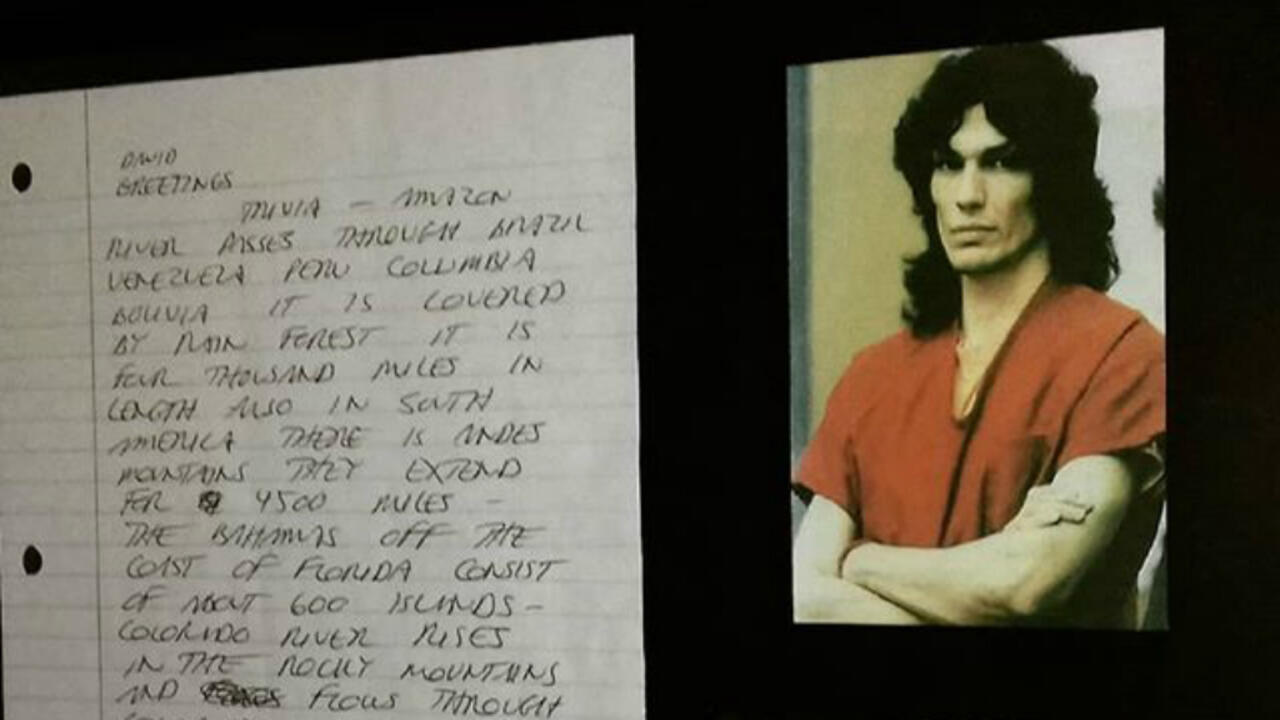 DAVID
GREETINGS
TRIVIA - AMAZON
RIVER PASSES THROUGH BRAZIL
VENEZUELA PERU COLUMBIA
BOLIVIA IT IS COVERED
BY RAIN FOREST IT IS
FOUR THOUSAND MILES IN
LENGTH ALSO IN SOUTH
AMERICA THERE IS ANDES
MOUNTAINS THEY EXTEND
FOR 4500 MILES -
THE BAHAMAS OFF THE
COAST OF FLORIDA CONSIST
OF ABOUT 600 ISLANDS -
COLORADO RIVER RISES
IN THE ROCKY MOUNTAINS
AND FLOWS THROUGH